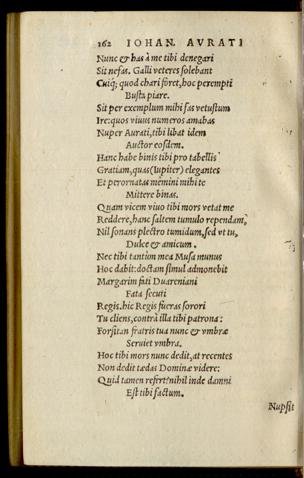 162 IOHAN. AVRATI
Nunc & has à me tibi denegari
Sit nefas. Galli veteres solebant
Cuiq; quod chari fóret, hoc perempti
Busta piare.
Sit per exemplum mihi fas vetustum
Ire: quos viuus numeros amabas
Nuper Aurati, tibi libat idem
Auctor eosdem.
Hanc habe binis tibi pro tabellis
Gratiam, quas (Iupiter) elegantes
Et perornatas memini mihi te
Mittere binas.
Quam vicem viuo tibi mors vetat me
Reddere, hanc saltem tumulo rependam,
Nil sonans plectro tumidum, sed vt tu,
Dulce & amicum.
Nec tibi tantùm mea Musa munus
Hoc dabit: doctam simul admonebit
Margarim fati Duareniani
Fata secuti
Regis. hic Regis fueras sorori
Tu cliens, contrà illa tibi patrona:
Forsitan fratris tua nunc & vmbræ
Seruiet vmbra.
Hoc tibi mors nunc dedit, at recentes
Non dedit tædas Dominæ videre:
Quid tamen refert? nihil inde damni
Est tibi factum.
Nupsit